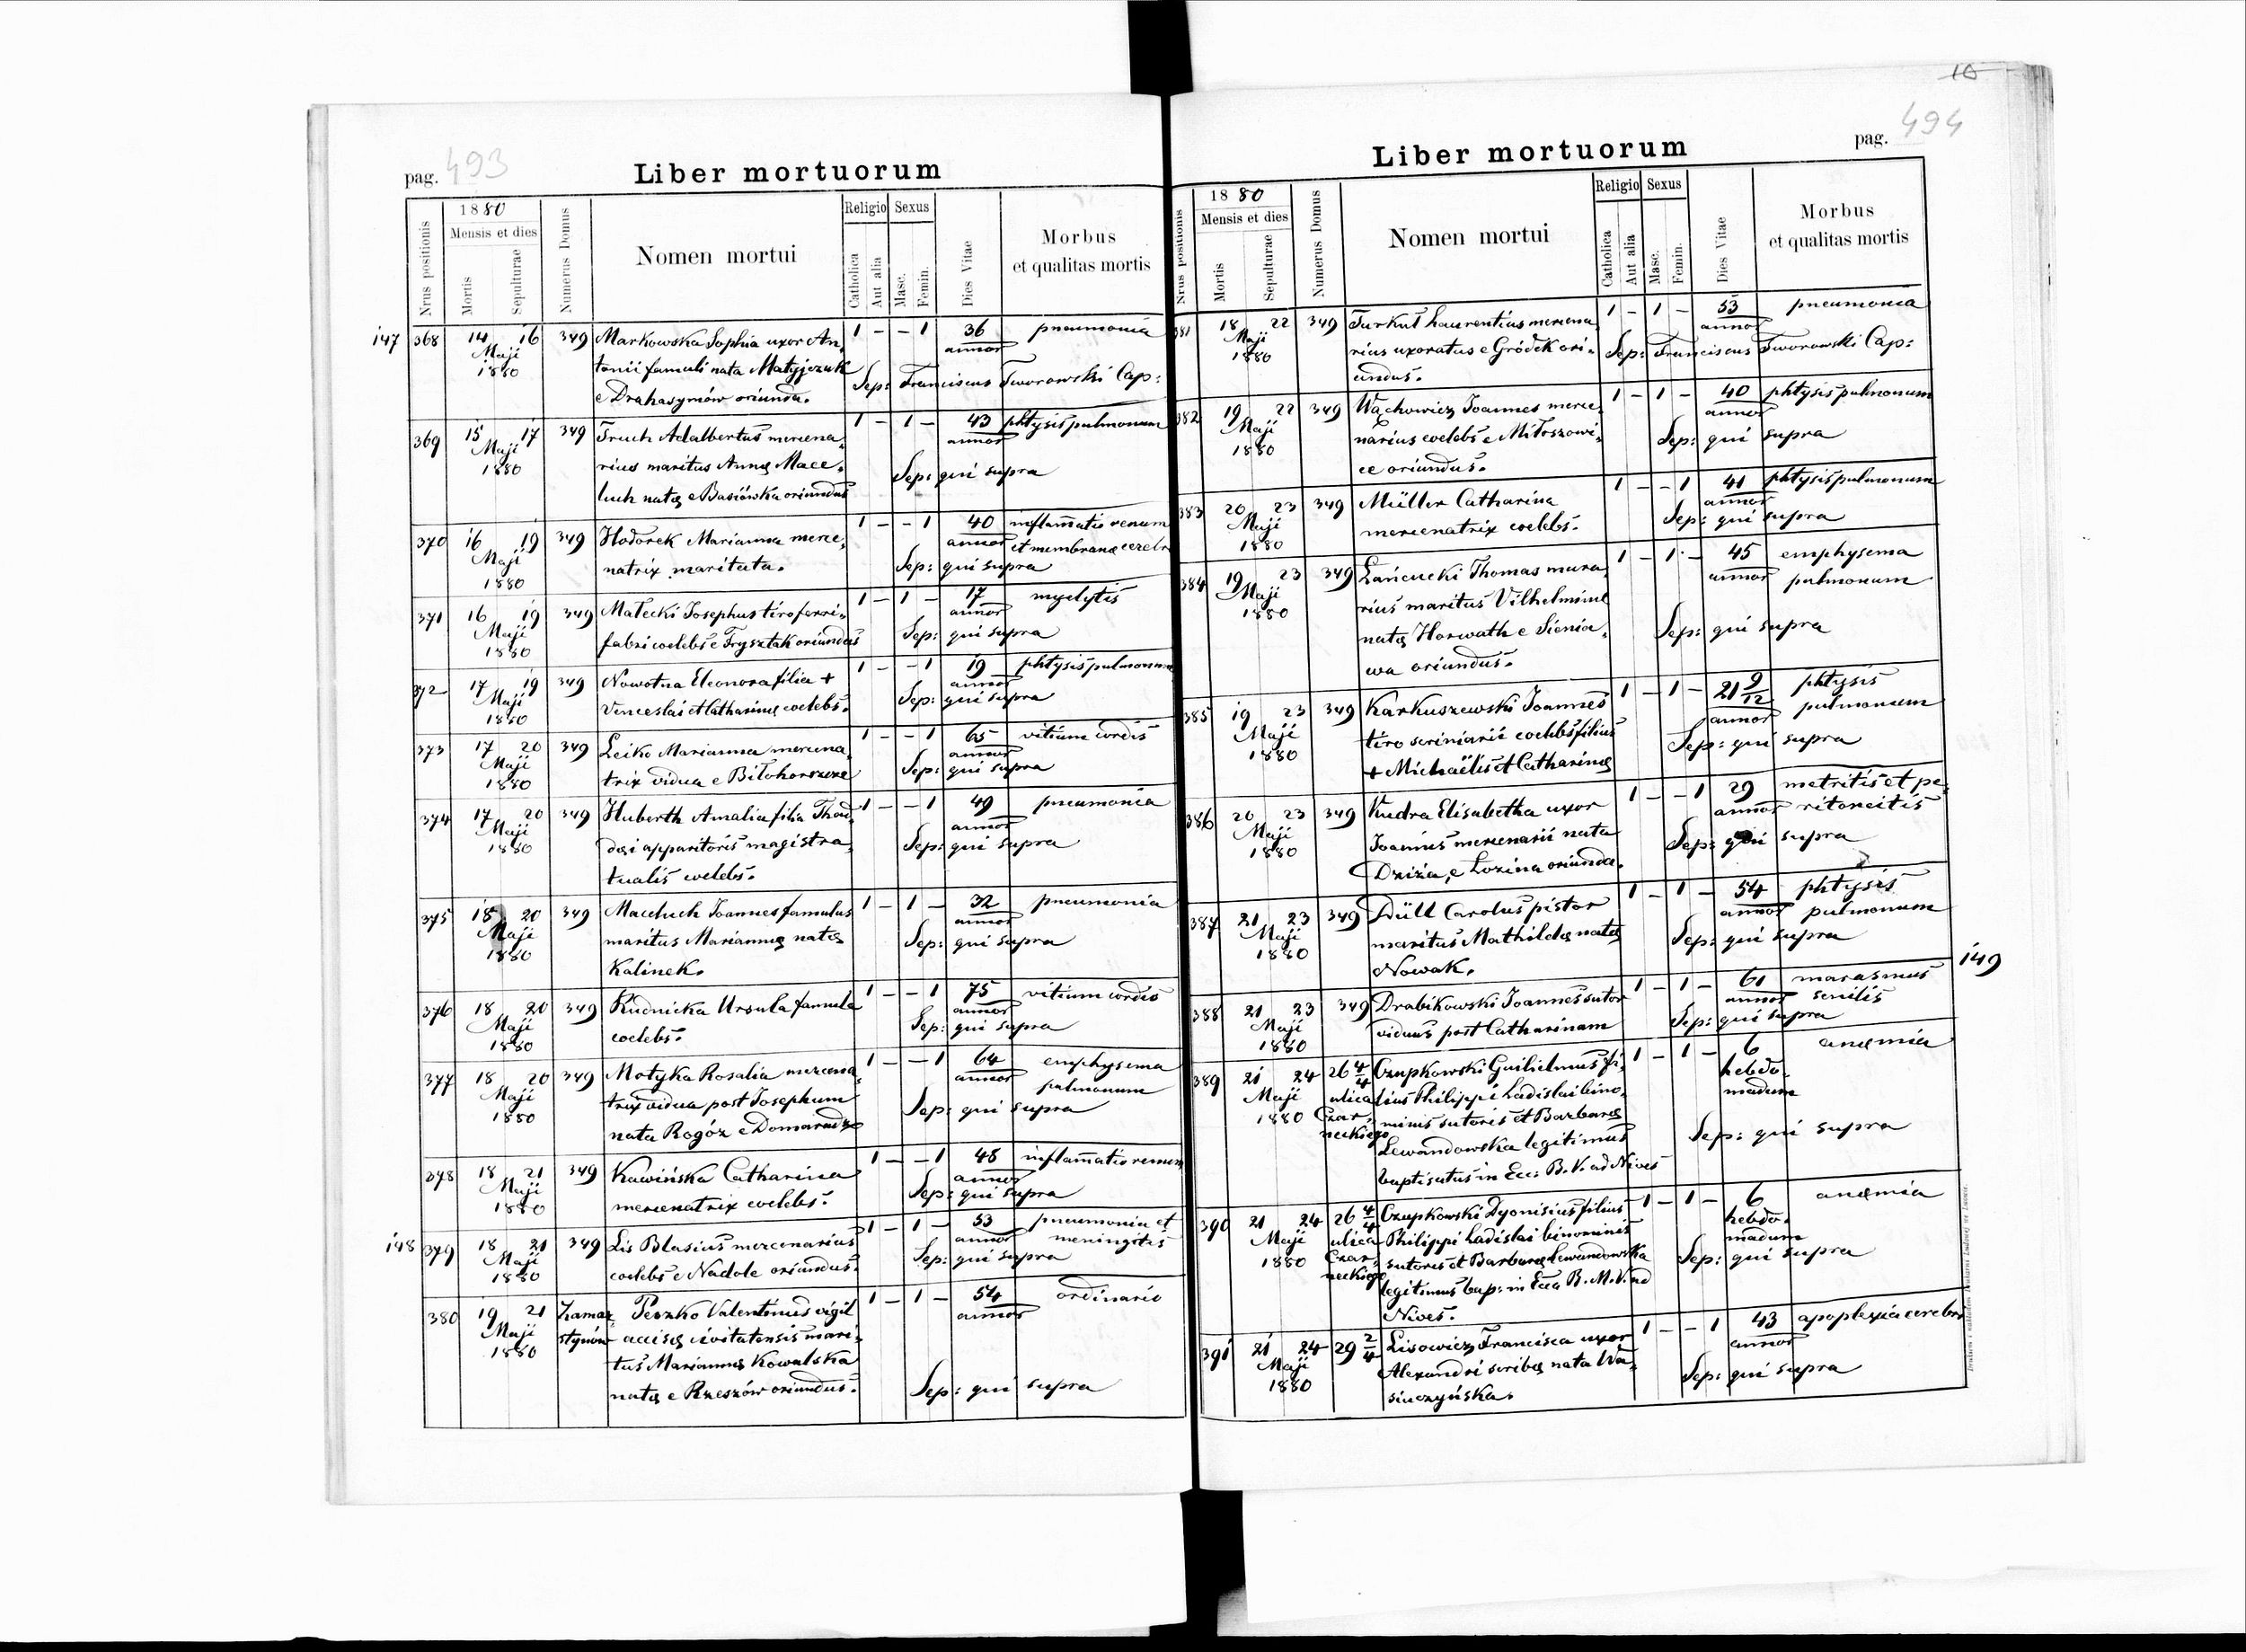 pag. 493
Liber mortuorum
Nrus positionis
1880
Mensis et dies
Mortis
Sepulturae
Numerus Domus
Nomen mortui
Religio
Catholica
Aut alia
Sexus
Masc.
Femin.
Dies Vitae
Morbus
et qualitas mortis
147 368 14 16 349 Markowska Sophia uxor An, 1 - - 1 36 pneumonia
Maji tonii famuli nata Matyjczuk annor
1880 e Drahasymów oriunda. Sep: Franciscus Tworowski Cap:
369 15 17 349 Truch Adalbertus mercena, 1 - 1 - 43 phtysis pulmonum
Maji rius maritus Annę Mace, annor
1880 luch natę e Basiówka oriundus Sep: qui supra
370 16 19 349 Hodorek Marianna merce, 1 - - 1 40 inflammatio renum
Maji natrix maritata. annor et membranæ cerebr
1880 Sep: qui supra
371 16 19 349 Małecki Josephus tiro ferri, 1 - 1 - 17 myelytis
Maji fabri coelebs e Frysztak oriundus annor
1880 Sep: qui supra
372 17 19 349 Nowotna Eleonora filia + 1 - - 1 19 phtysis pulmonum
Maji Venceslai et Catharinę coelebs. annor
1880 Sep: qui supra
373 17 20 349 Leiko Marianna mercena, 1 - - 1 65 vitium cordis
Maji trix vidua e Biłohorszcze annor
1880 Sep: qui supra
374 17 20 349 Huberth Amalia filia Thad, 1 - - 1 49 pneumonia
Maji dęi apparitoris magistra, annor
1880 tualis coelebs. Sep: qui supra
375 18 20 349 Maceluch Joannes famulus 1 - 1 - 32 pneumonia
Maji maritus Mariannę natę annor
1880 Kalinek. Sep: qui supra
376 18 20 349 Rudnicka Ursula famula 1 - - 1 75 vitium cordis
Maji coelebs. annor
1880 Sep: qui supra
377 18 20 349 Motyka Rosalia mercena, 1 - - 1 64 emphysema
Maji trix vidua post Josephum annor pulmonum
1880 nata Rogóz e Domaradz Sep: qui supra
378 18 21 349 Kawińska Catharina 1 - - 1 48 inflammatio renum
Maji mercenatrix coelebs. annor
1880 Sep: qui supra
148 379 18 21 349 Lis Blasius mercenarius 1 - 1 - 53 pneumonia et
Maji coelebs e Nadole oriundus. annor meningitis
1880 Sep: qui supra
380 19 21 Zamar, Peszko Valentinus vigil 1 - 1 - 54 ordinario
Maji stynów accisę civitatensis mari, annor
1880 tus Mariannę Kowalska
natę e Rzeszów oriundus. Sep: qui supra
10
494
pag.
Liber mortuorum
Nrus positionis
1880
Mensis et dies
Mortis
Sepulturae
Numerus Domus
Nomen mortui
Religio
Catholica
Aut alia
Sexus
Masc.
Femin.
Dies Vitae
Morbus
et qualitas mortis
381 18 22 349 Turkuł Laurentius mercena, 1 - 1 - 53 pneumonia
Maji rius uxoratus e Gródek ori, annor
1880 undus. Sep: Franciscus Tworowski Cap:
382 19 22 349 Wąchowicz Joannes merce, 1 - 1 - 40 phtysis pulmonum
Maji narius coelebs e Miłoszowi, annor
1880 ce oriundus. Sep: qui supra
383 20 23 349 Müller Catharina 1 - - 1 41 phtysis pulmonum
Maji mercenatrix coelebs. annor
1880 Sep: qui supra
384 19 23 349 Łańcucki Thomas mura, 1 - 1 - 45 emphysema
Maji rius maritus Vilhelminę annor pulmonum
1880 natę Horwath e Sienia, Sep: qui supra
wa oriundus.
385 19 23 349 Karkuszewski Joannes 1 - 1 - 21 9/12 phtysis
Maji tiro scriniarii coelebs filius annor pulmonum
1880 + Michaëlis et Catharinę Sep: qui supra
386 20 23 349 Kudra Elisabetha uxor 1 - - 1 29 metritis et pe,
Maji Joannis mercenarii nata annor ritoneitis
1880 Dziża, e Lozina oriunda. Sep: qui supra
387 21 23 349 Düll Carolus pistor 1 - 1 - 54 phtysis
Maji maritus Mathildę natę annor pulmonum
1880 Nowak. Sep: qui supra
149
388 21 23 349 Drabikowski Joannes sutor 1 - 1 - 61 marasmus
Maji viduus post Catharinam annor senilis
1880 Sep: qui supra
389 21 24 26 4/4 Czupkowski Guilielmus fi, 1 - 1 - 6 anęmia
Maji ulica lius Philippi Ladislai bino, hebdo,
1880 Czar, minis sutoris et Barbarę madum
neckiego Lewandowska legitimus Sep: qui supra
baptisatus in Ecc: B. V. ad Nives
390 21 24 26 4/4 Czupkowski Dyonisius filius 1 - 1 - 6 anęmia
Maji ulica Philippi Ladislai binominis hebdo,
1880 Czar, sutoris et Barbarę Lewandowska madum
neckiego legitimus bap: in Ecca B. M. V. ad Sep: qui supra
Nives.
391 21 24 29 2/4 Lisowicz Francisca uxor 1 - - 1 43 apoplexia cerebri
Maji Alexandri scribę nata Wa, annor
1880 siuczyńska. Sep: qui supra